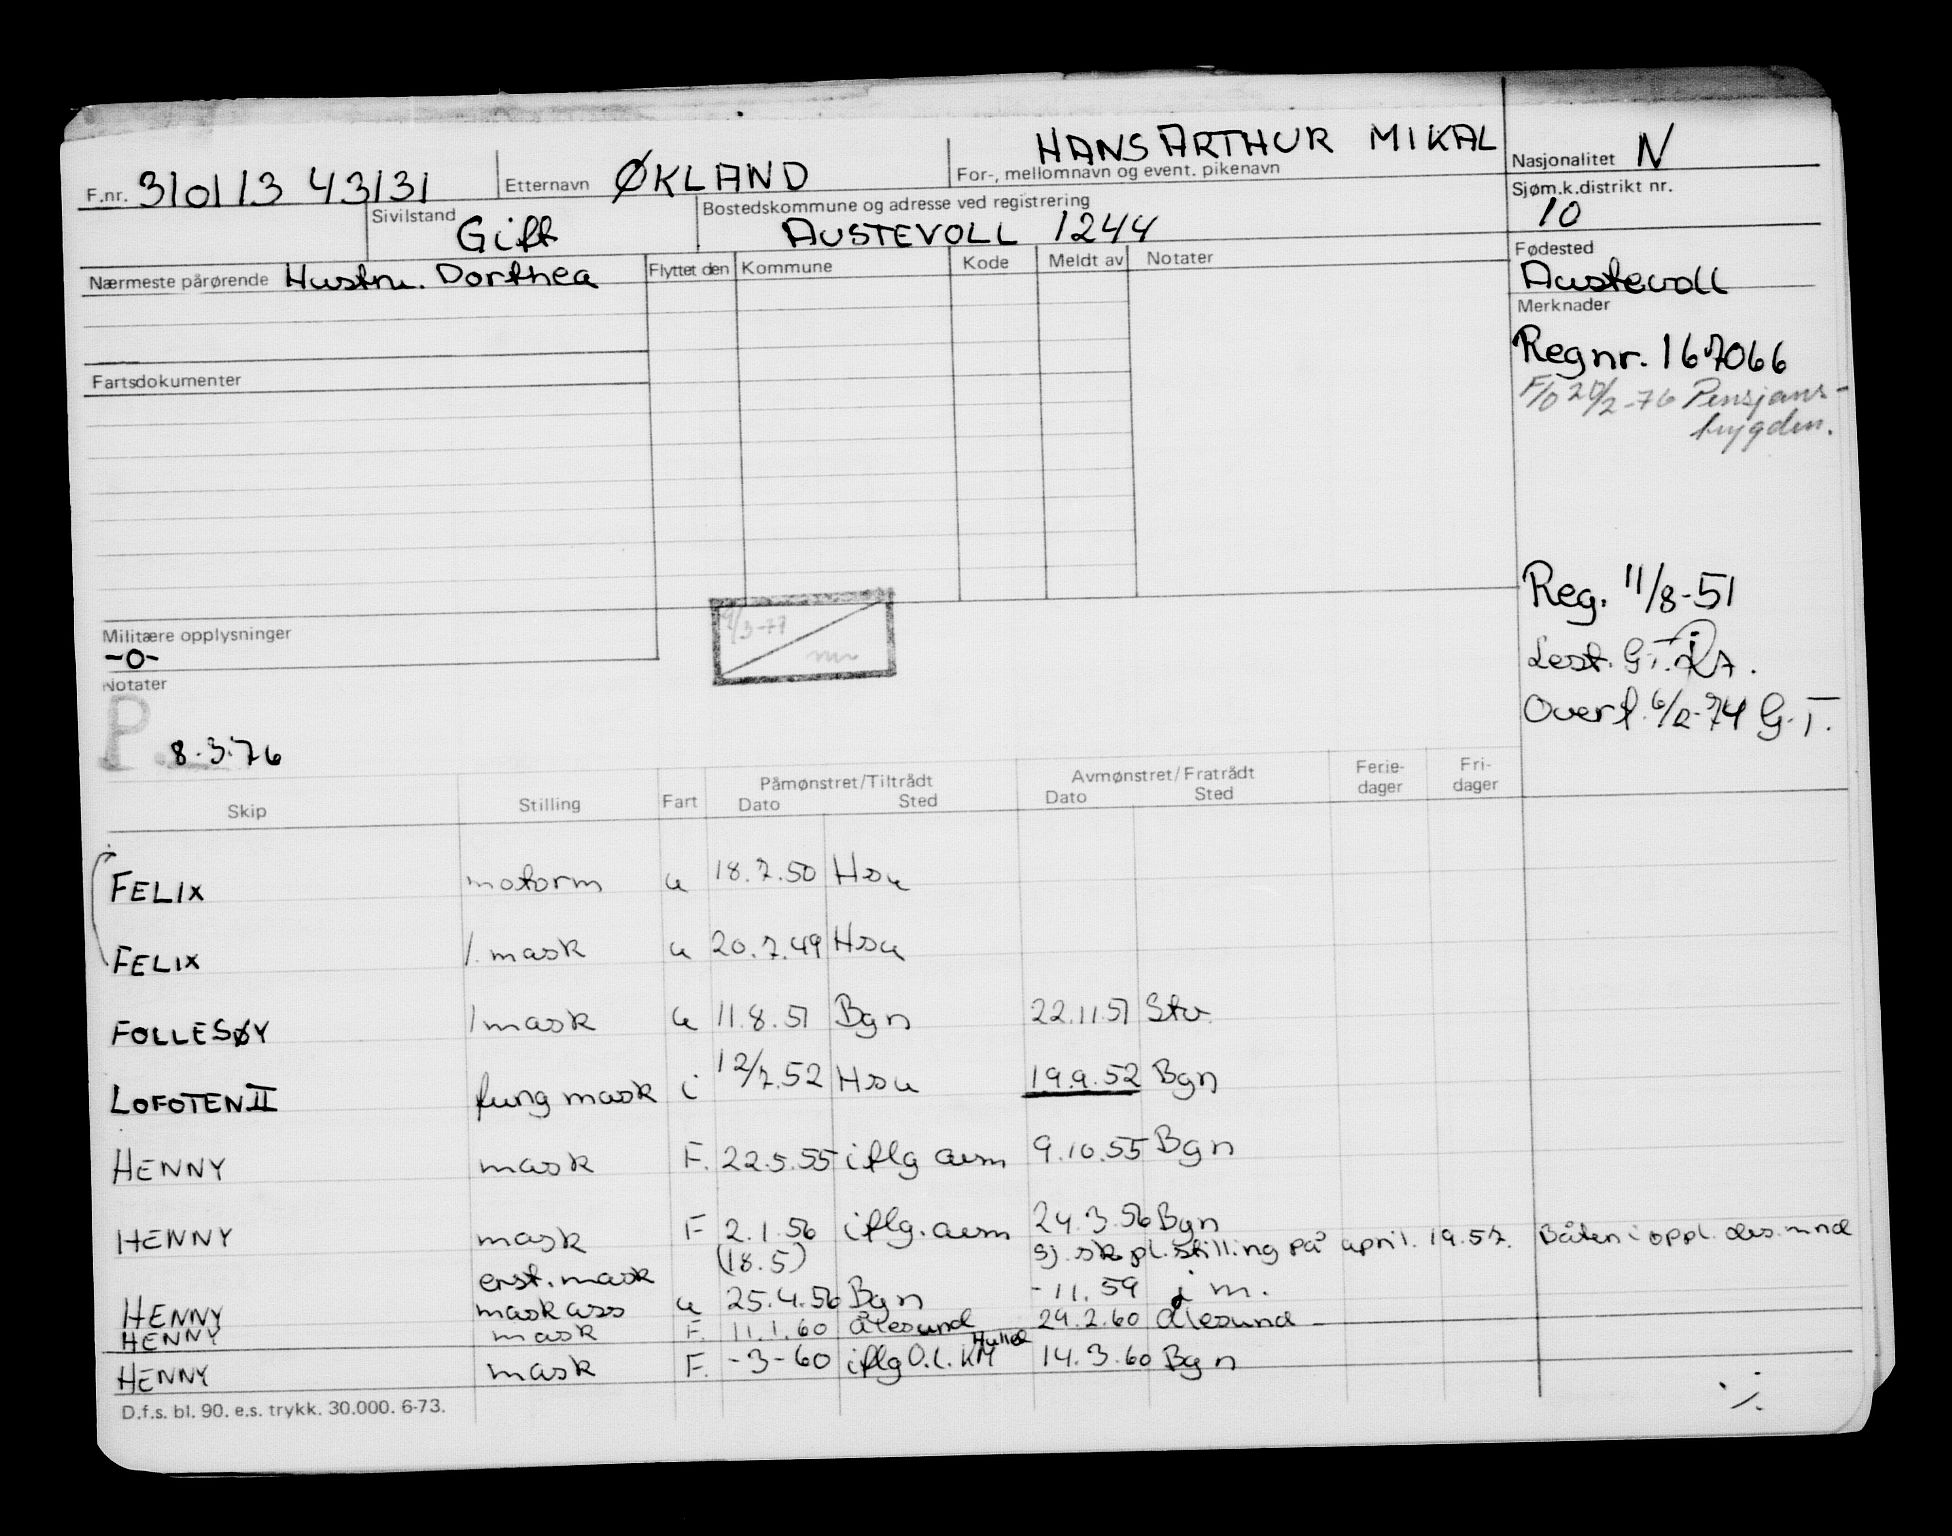 F.nr. 310113 43131 Etternavn ØKLAND For-, mellomnavn og event. pikenavn HANS ARTHUR MIKAL Nasjonalitet N
Sivilstand Gift Bostedskommune og adresse ved registrering AUSTEVOLL 1244 Sjøm.k.distrikt nr. 10
Nærmeste pårørende Hustru. Dorthea Flyttet den Kommune Kode Meldt av Notater
Fødested Austevoll
Merknader
Regnr. 167066
Fartsdokumenter
F/O 20/2-76 Pensjons-
trygden.
Reg. 11/8-51
Lest. G.T.
Overf. 6/2-74 G.T.
Militære opplysninger
-0-
9/3-77
Notater
P. 8.3.76
Skip Stilling Fart Påmønstret/Tiltrådt Dato Sted Avmønstret/Fratrådt Dato Sted Ferie-dager Fri-dager
FELIX motorm u 18.7.50 Hsu
FELIX 1. mask u 20.7.49 Hsu
FOLLESØY 1 mask u 11.8.51 Bgn 22.11.51 Stv.
LOFOTEN II fung mask i 12/7.52 Hsu 19.9.52 Bgn
HENNY mask F. 22.5.55 iflg avm 9.10.55 Bgn
HENNY mask F 2.1.56 iflg. avm 24.3.56 Bgn
(18.5) sj. sk pl. stilling på april. 19.57. Båten i oppl. des. mnd
erst. mask
HENNY mask ass u 25.4.56 Bgn -11.59 i m.
HENNY mask F. 11.1.60 Ålesund 24.2.60 Ålesund
HENNY mask F. -3-60 iflg O.l. KM Hullel 14.3.60 Bgn
D.f.s. bl. 90. e.s. trykk. 30.000. 6-73.
./.